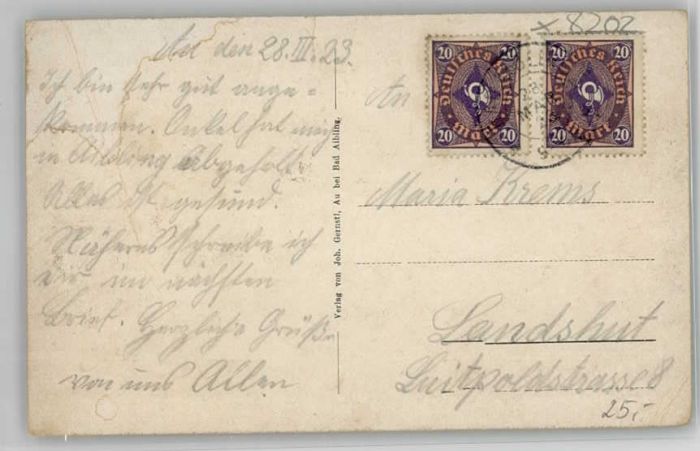 Au den 28.III.23.
Ich bin sehr gut ange-
kommen. Onkel hat mich
in Aibling abgeholt.
Alles ist gesund.
Näheres schreibe ich
Dir im nächsten
Brief. Herzliche Grüße
von uns Allen
Verlag von Joh. Gernstl, Au bei Bad Aibling.
x 8202
20 20
Deutsches Reich
Mark
20 20
20 20
Deutsches Reich
Mark
20 20
An
Maria Krems
Landshut
Luitpoldstrasse 8
25,-